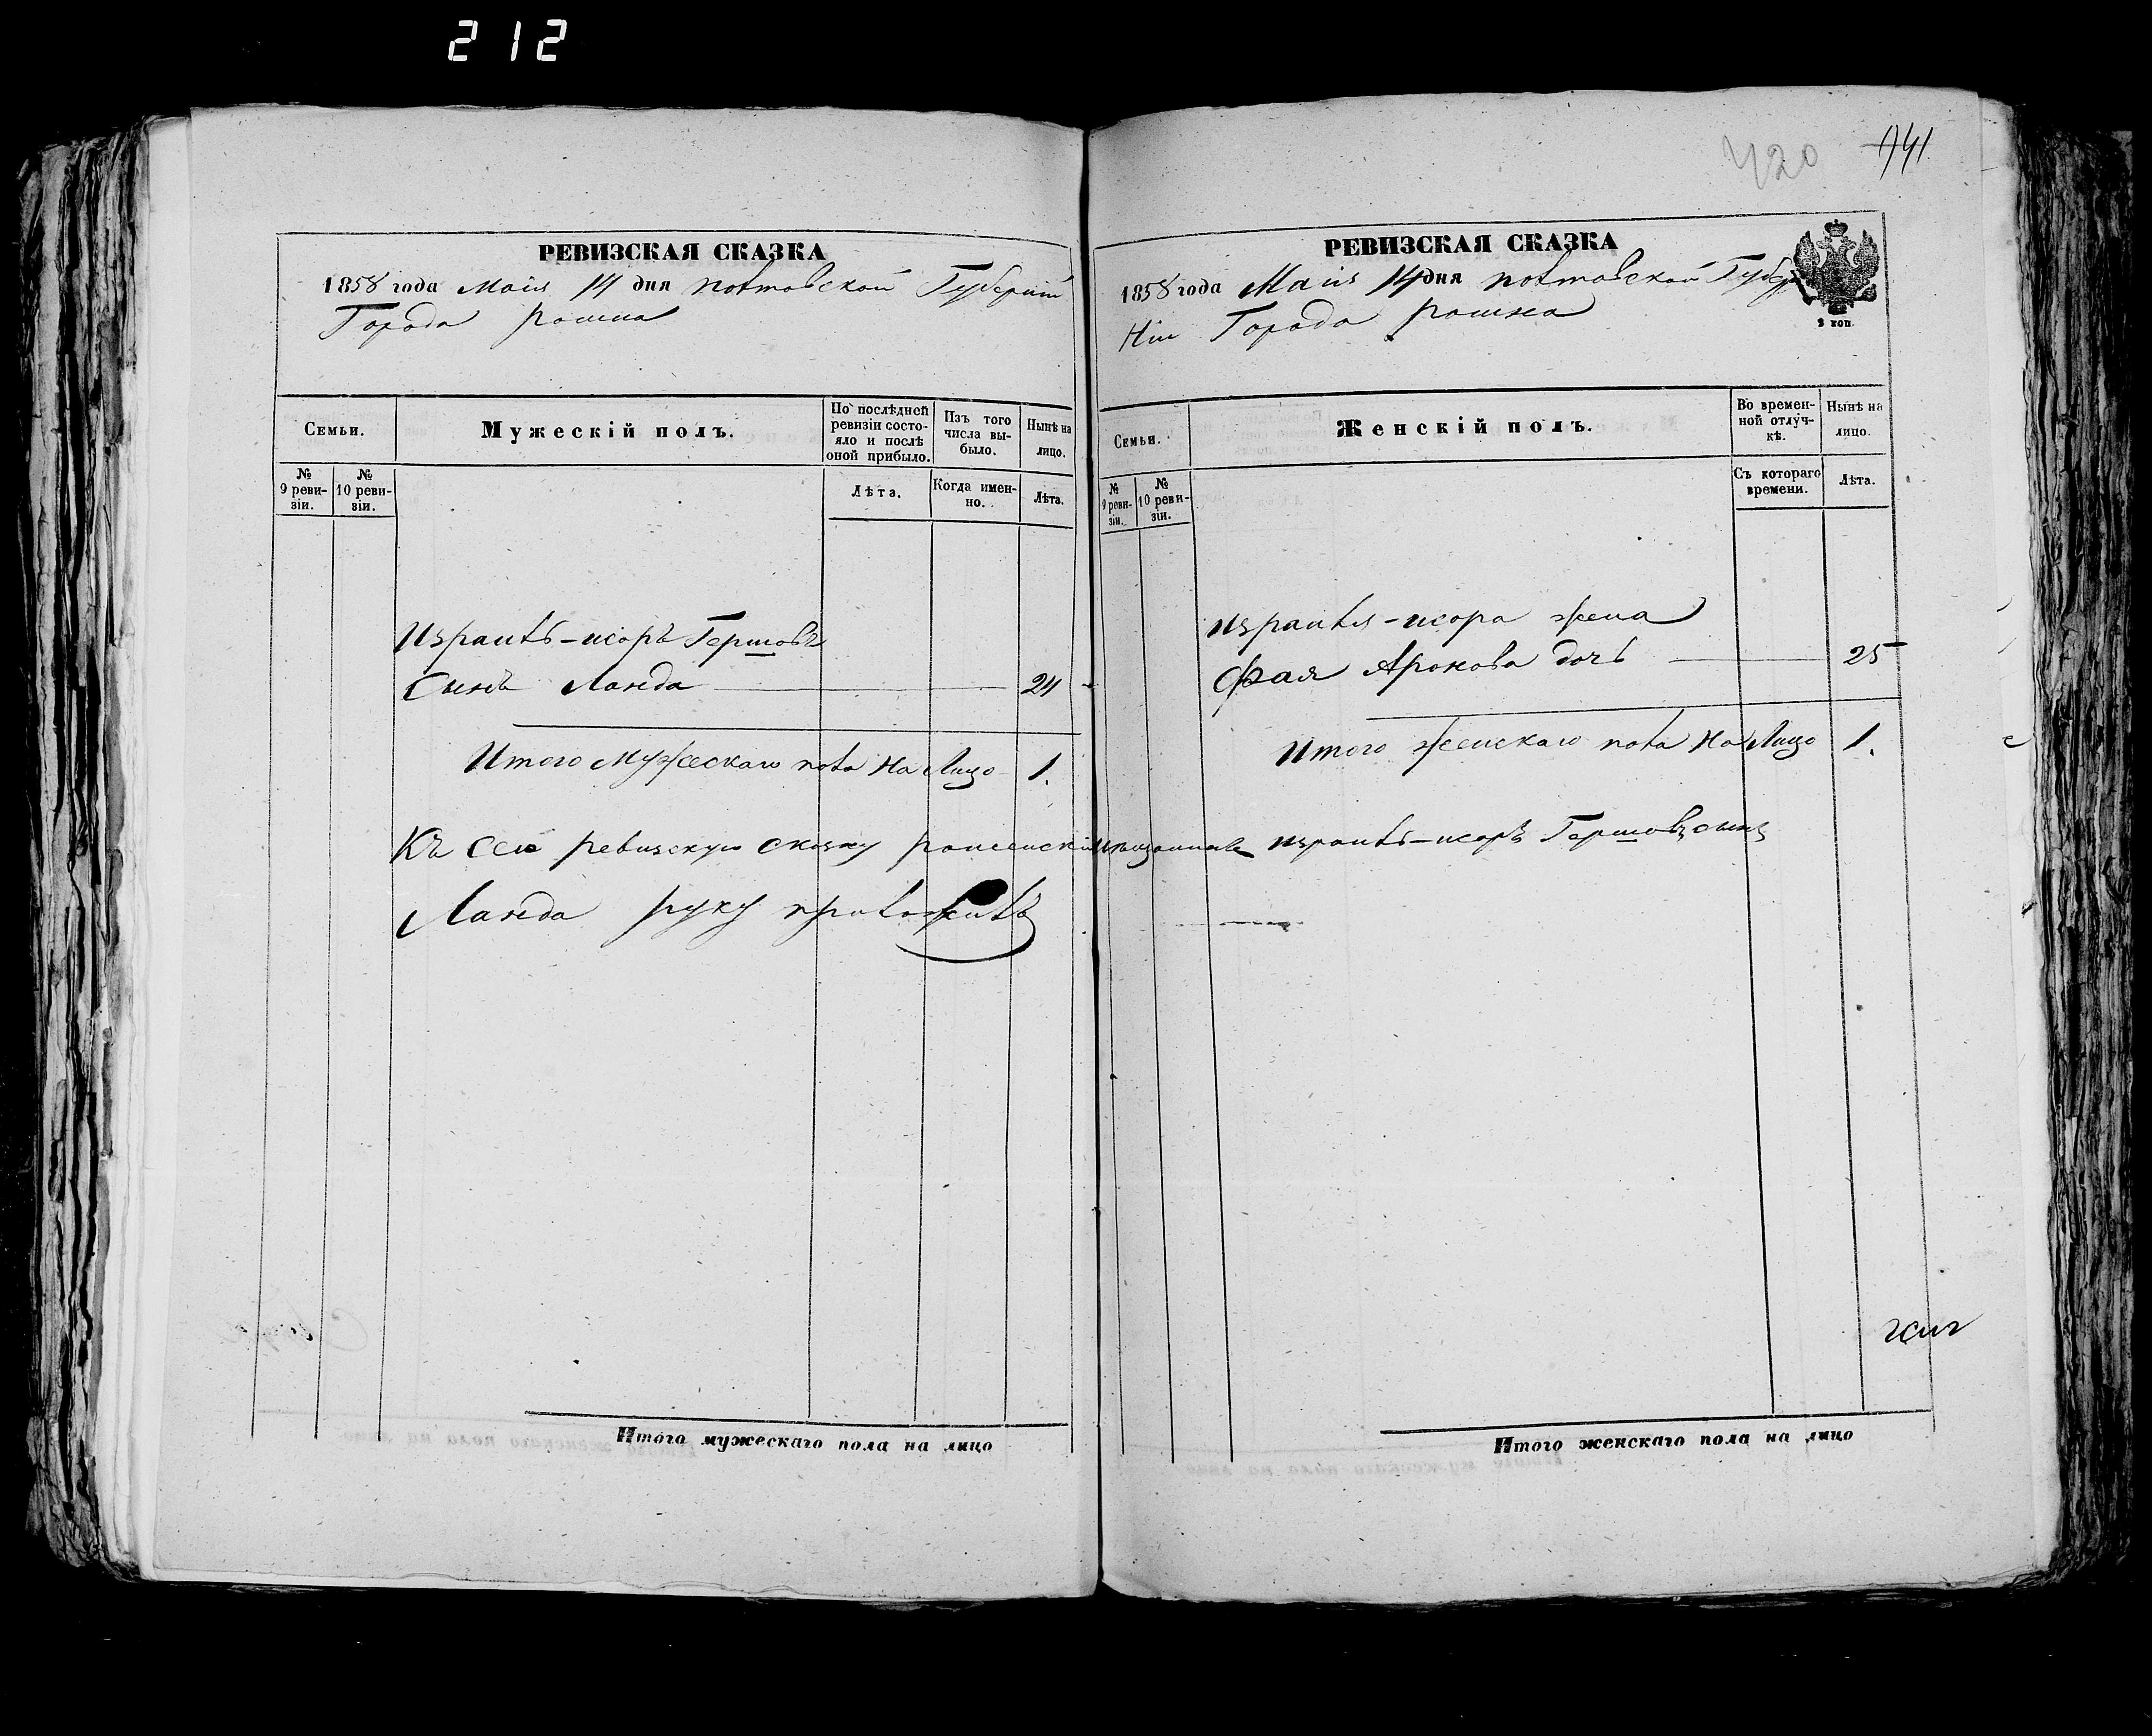 212
420 941
РЕВИЗСКАЯ СКАЗКА
1858 года Маія 14 дня Полтавской Губерніи
Города Ромна
Семьи.
Мужескій полъ.
По послѣдней ревизіи состояло и послѣ оной прибыло.
Изъ того числа выбыло.
Нынѣ на лицо.
№ 9 ревизіи.
№ 10 ревизіи.
Лѣта.
Когда именно.
Лѣта.
Израиль-исоръ Гершовъ
Сынъ Ланда 24
Итого Мужескаго пола на Лицо 1.
РЕВИЗСКАЯ СКАЗКА
1858 года Маія 14 дня Полтавской Губер
ніи Города Ромна
2 коп.
Семьи.
Женскій полъ.
Во временной отлучкѣ.
Нынѣ на лицо.
№ 9 ревизіи.
№ 10 ревизіи.
Съ котораго времени.
Лѣта.
Израиля-исора жена
Фая Аронова дочь 25
Итого женскаго пола на Лицо 1.
Къ сей ревизскую сказку роменскій мѣщанинъ Израиль-исоръ Гершовъ сынъ
Ланда руку приложилъ
Итого мужескаго пола на лицо
Итого женскаго пола на лицо